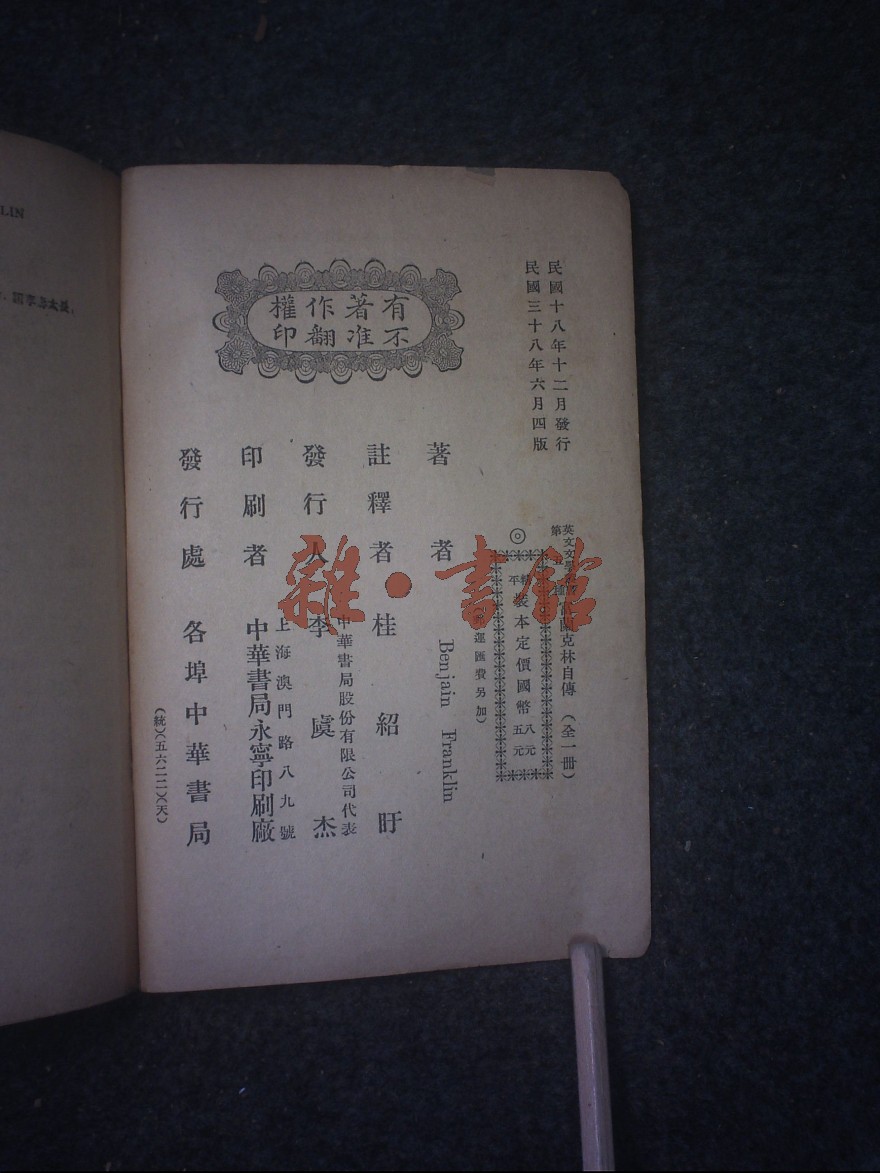 民國十八年十二月發行
民國三十八年六月四版
有著作權
不准翻印
英文文學
第
富蘭克林自傳（全一冊）
◎
平裝本定價國幣
八元
五元
運匯費另加）
著者 Benjain Franklin
註釋者 桂紹盱
發行人 李虞杰
中華書局股份有限公司代表
印刷者
上海澳門路八九號
中華書局永寧印刷廠
發行處 各埠中華書局
（統）（五六二二）（天）
LIN
雜·書館